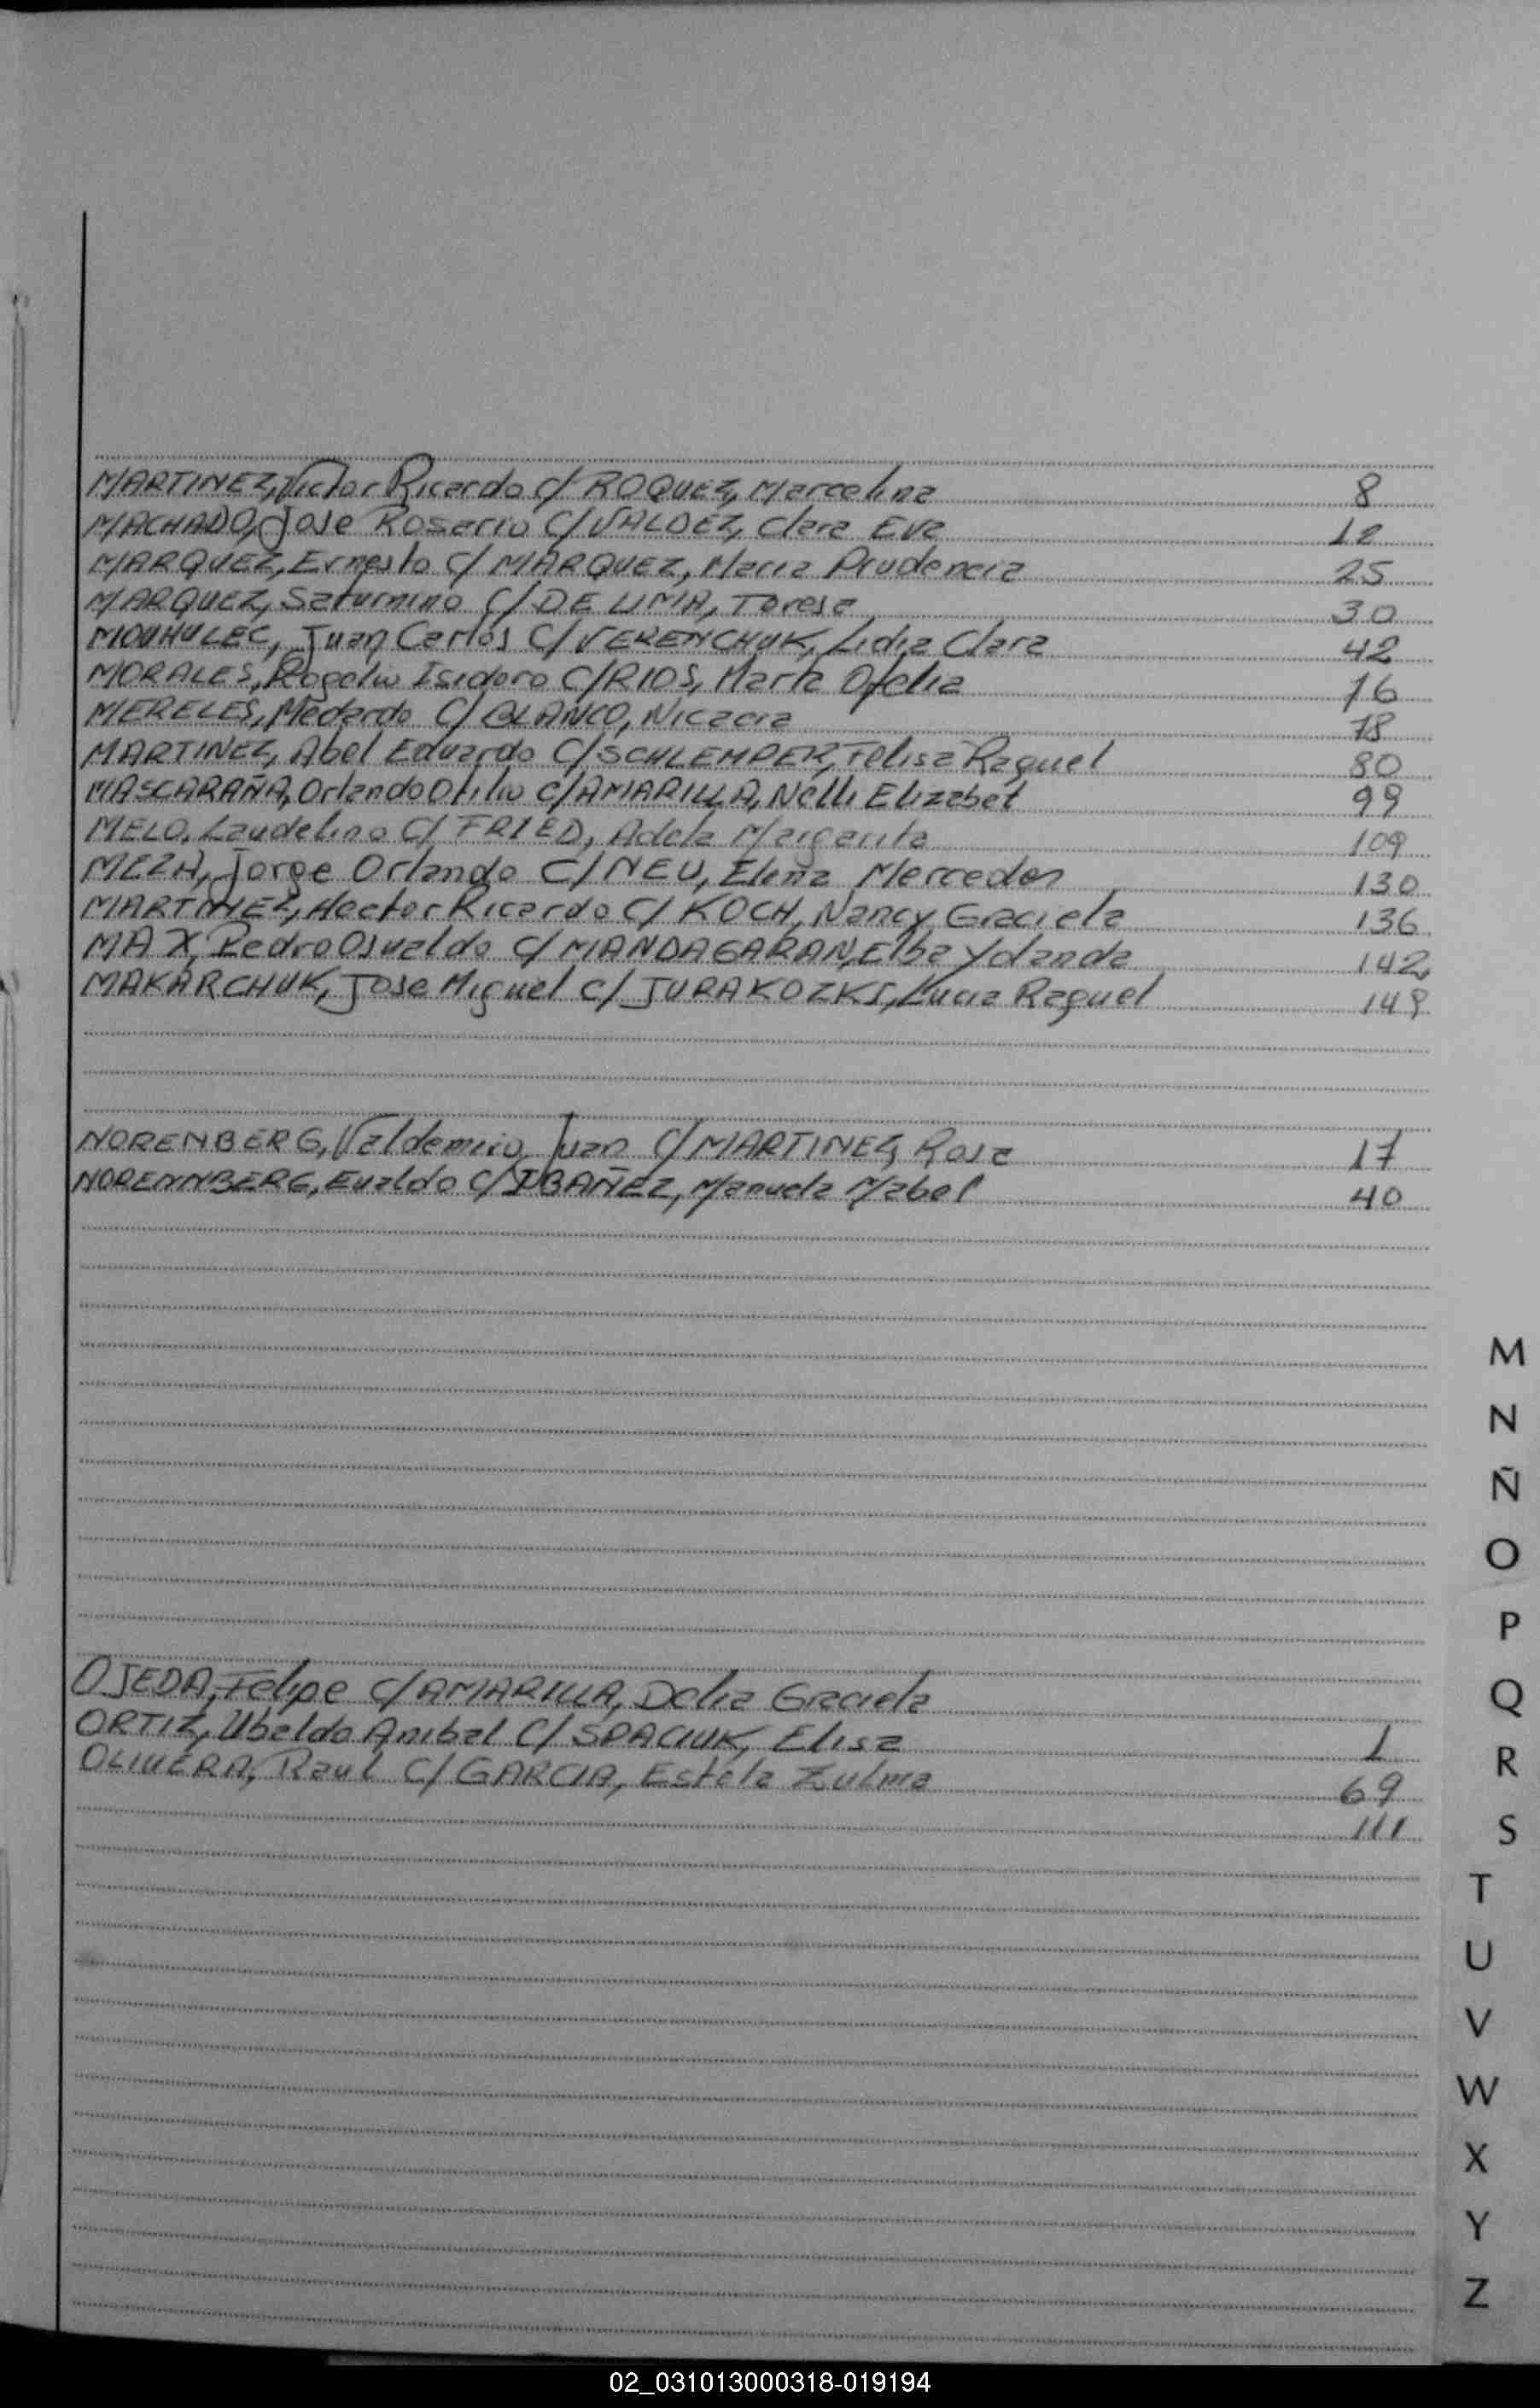 MARTINEZ, Victor Ricardo c/ ROQUEZ, Marcelina 8
MACHADO, Jose Rosario C/ VALDEZ, Clara Eva 12
MARQUEZ, Ernesto C/ MARQUEZ, Maria Prudencia 25
MARQUEZ, Saturnino C/ DE LIMA, Teresa 30
Juan Carlos C/ VERENCHUK, Lidia Clara 42
MORALES, Rogelio Isidoro C/ RIOS, Marta Ofelia 76
MERELES, Medardo C/ BLANCO, Nicacia 78
MARTINEZ, Abel Eduardo C/ SCHLEMPER, Felisa Raquel 80
MASCARAÑA, Orlando Otilio C/ AMARILLA, Nelli Elizabet 99
MELO, Laudelino C/ FRIED, Adela Margarita 109
MEZA, Jorge Orlando C/ NEU, Elena Mercedes 130
MARTINEZ, Hector Ricardo C/ KOCH, Nancy Graciela 136
MAX, Pedro Osvaldo C/ MANDAGARAN, Elba Yolanda 142
MAKARCHUK, Jose Miguel C/ JURAKOZKI, Lucia Raquel 149
NORENBERG, Valdemiro Juan C/ MARTINEZ, Rosa 17
NORENNBERG, Evaldo C/ IBAÑEZ, Manuela Mabel 40
OJEDA, Felipe C/ AMARILLA, Delia Graciela
ORTIZ, Ubaldo Anibal C/ SPACIUK, Elisa 1
OLIVERA, Raul C/ GARCIA, Estela Zulma 69
111
M
N
Ñ
O
P
Q
R
S
T
U
V
W
X
Y
Z
02_031013000318-019194